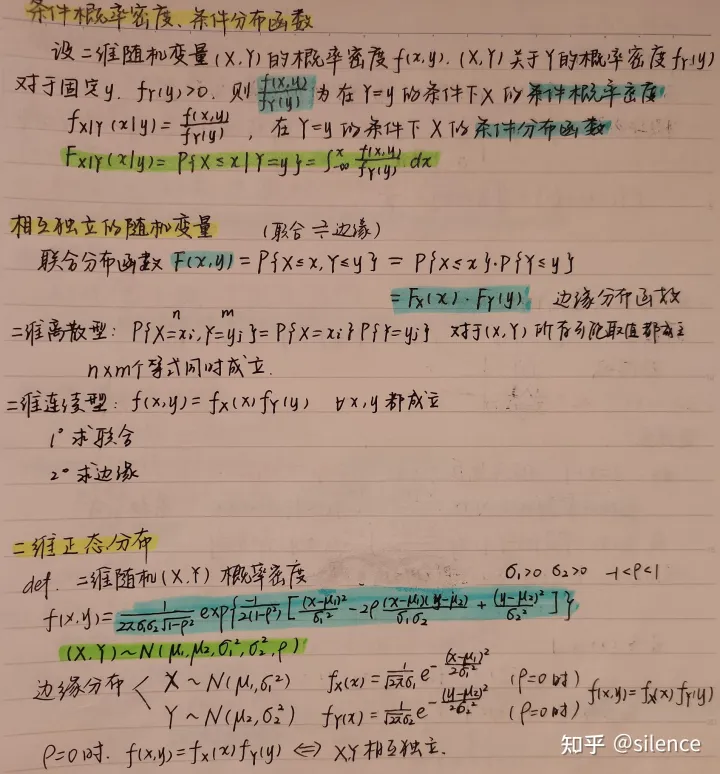 条件概率密度、条件分布函数
设二维随机变量(X,Y)的概率密度f(x,y). (X,Y)关于Y的概率密度fY(y)
对于固定y. fY(y)>0. 则 f(x,y)/fY(y) 为在Y=y的条件下X的条件概率密度
fX|Y(x|y) = f(x,y)/fY(y) , 在Y=y的条件下X的条件分布函数
FX|Y(x|y) = P{X≤x|Y=y} = ∫_{-∞}^{x} f(x,y)/fY(y) dx
相互独立的随机变量 (联合⇌边缘)
联合分布函数 F(x,y) = P{X≤x,Y≤y} = P{X≤x}·P{Y≤y}
= FX(x)·FY(y) 边缘分布函数
n m
二维离散型: P{X=xi,Y=yj} = P{X=xi}P{Y=yj} 对于(X,Y)所有可能取值都成立
n×m个等式同时成立.
二维连续型: f(x,y) = fX(x)fY(y) ∀x,y都成立
1° 求联合
2° 求边缘
二维正态分布
def. 二维随机(X,Y)概率密度 σ1>0 σ2>0 -1<ρ<1
f(x,y) = 1/(2πσ1σ2√(1-ρ²)) exp{-1/(2(1-ρ²)) [(x-μ1)²/σ1² - 2ρ(x-μ1)(y-μ2)/(σ1σ2) + (y-μ2)²/σ2²]}
(X,Y)~N(μ1,μ2,σ1²,σ2²,ρ)
边缘分布 < X~N(μ1,σ1²) fX(x) = 1/(√(2π)σ1) e^{-(x-μ1)²/(2σ1²)} (ρ=0时) f(x,y)=fX(x)fY(y)
Y~N(μ2,σ2²) fY(y) = 1/(√(2π)σ2) e^{-(y-μ2)²/(2σ2²)} (ρ=0时)
ρ=0时. f(x,y)=fX(x)fY(y) ⟺ X,Y相互独立.
知乎 @silence